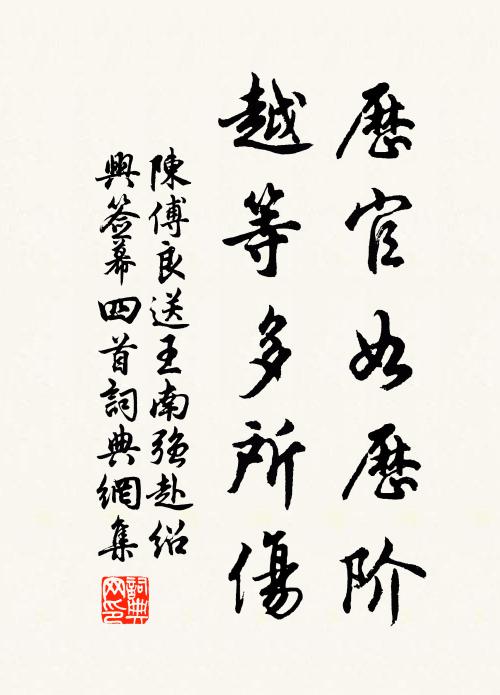 歷官如歷阶
越等多所傷
陳傅良送王南强赴紹
興簽幕四首詞典網集
詞典网印